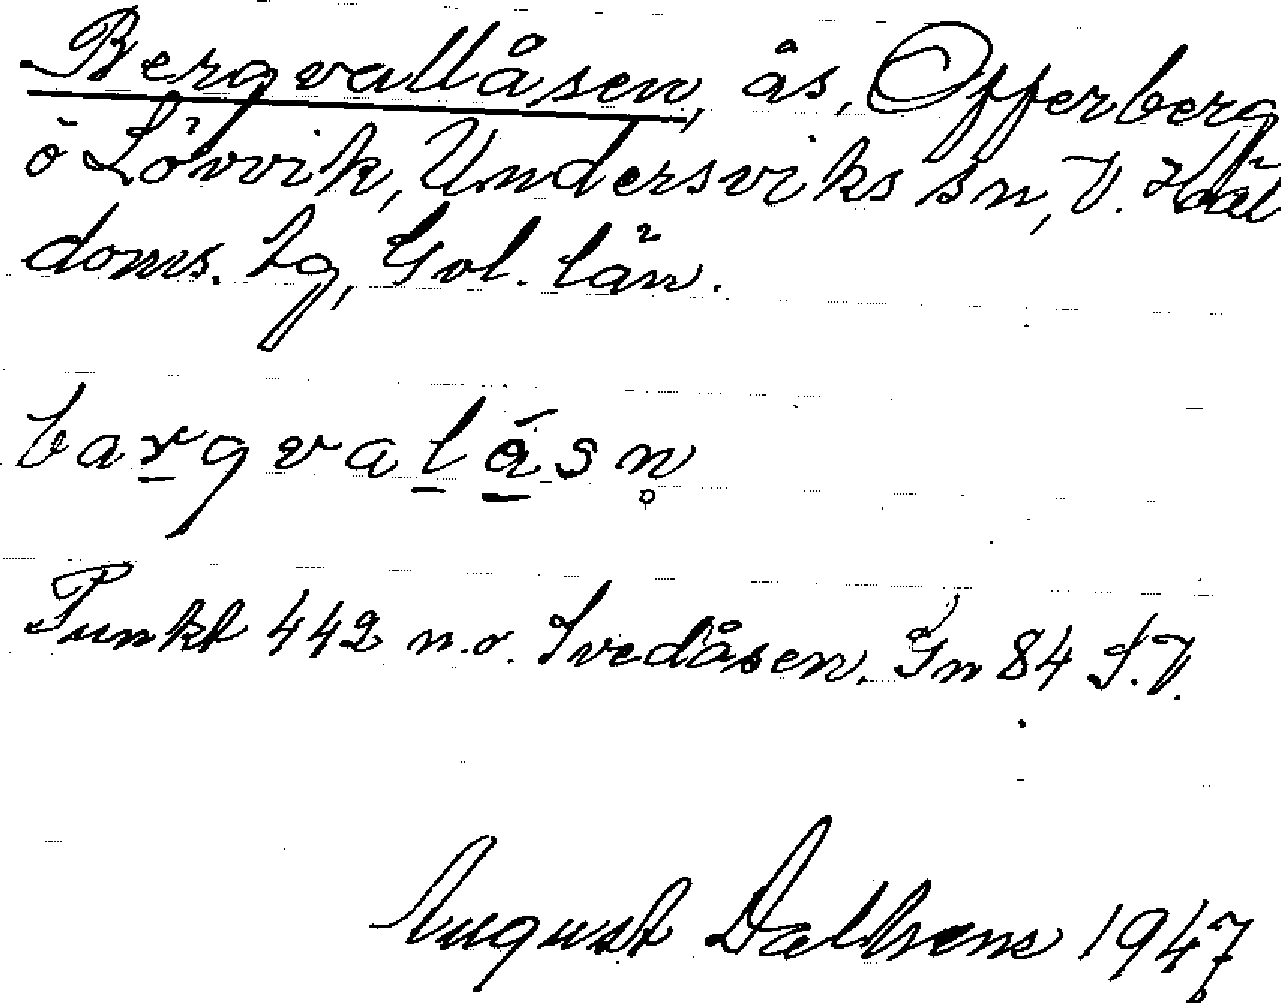 Bergvallåsen, ås, Offerberg
o Lövvik, Undersviks sn, V. Häl
doms. hg, Gvl. län.
bargvalåsn̥
Punkt 442 n.v. Svedåsen. Gn 84 S.V.
August Dalhens 1947